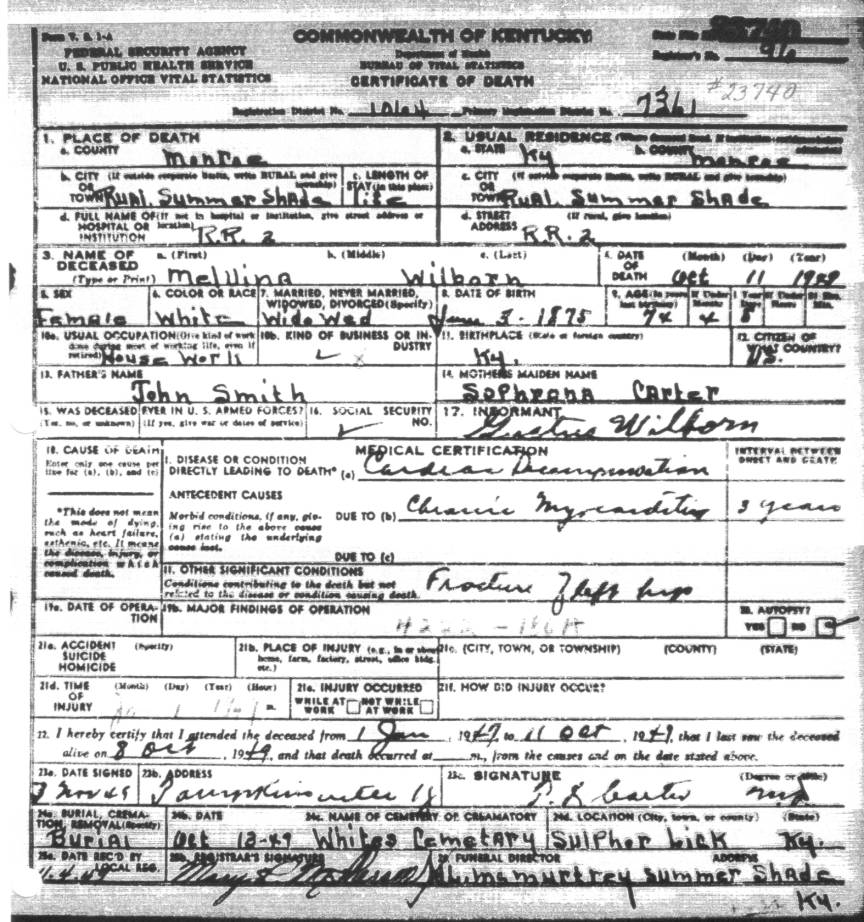 Form V. S. 1-A
FEDERAL SECURITY AGENCY
U. S. PUBLIC HEALTH SERVICE
NATIONAL OFFICE VITAL STATISTICS
COMMONWEALTH OF KENTUCKY
Department of Health
BUREAU OF VITAL STATISTICS
CERTIFICATE OF DEATH
State File No. 23740
Registrar's No. 96
#23740
Registration District No. 1064 Primary Registration District No. 7361
1. PLACE OF DEATH
a. COUNTY Monroe
2. USUAL RESIDENCE (Where deceased lived. If institution: residence before admission)
a. STATE Ky b. COUNTY Monroe
b. CITY (If outside corporate limits, write RURAL and give township) OR TOWN Rual. Summer Shade
c. LENGTH OF STAY (in this place) life
c. CITY (If outside corporate limits, write RURAL and give township) OR TOWN Rual Summer Shade
d. FULL NAME OF (If not in hospital or institution, give street address or location) HOSPITAL OR INSTITUTION R.R. 2
d. STREET ADDRESS (If rural, give location) R.R. 2
3. NAME OF DECEASED (Type or Print)
a. (First) b. (Middle) c. (Last)
Melvina Wilborn
4. DATE OF DEATH (Month) (Day) (Year)
Oct 11 1949
5. SEX Female
6. COLOR OR RACE White
7. MARRIED, NEVER MARRIED, WIDOWED, DIVORCED (Specify) Widowed
8. DATE OF BIRTH June 3. 1875
9. AGE (In years last birthday) 74 If Under 1 Year 4 8 If Under 24 Hrs.
10a. USUAL OCCUPATION (Give kind of work done during most of working life, even if retired) House Work
10b. KIND OF BUSINESS OR INDUSTRY
11. BIRTHPLACE (State or foreign country) Ky.
12. CITIZEN OF WHAT COUNTRY? US.
13. FATHER'S NAME
John Smith
14. MOTHER'S MAIDEN NAME
Sophrona Carter
15. WAS DECEASED EVER IN U. S. ARMED FORCES?
(Yes, no, or unknown) (If yes, give war or dates of service)
16. SOCIAL SECURITY NO.
17. INFORMANT
Wilborn
18. CAUSE OF DEATH
Enter only one cause per line for (a), (b), and (c)
MEDICAL CERTIFICATION
INTERVAL BETWEEN ONSET AND DEATH
I. DISEASE OR CONDITION DIRECTLY LEADING TO DEATH* (a) Cardiac Decompensation
*This does not mean the mode of dying, such as heart failure, asthenia, etc. It means the disease, injury, or complication which caused death.
ANTECEDENT CAUSES
Morbid conditions, if any, giving rise to the above cause (a) stating the underlying cause last.
DUE TO (b) Chronic Myocarditis 3 years
DUE TO (c)
II. OTHER SIGNIFICANT CONDITIONS
Conditions contributing to the death but not related to the disease or condition causing death.
Fracture of left hip
19a. DATE OF OPERATION
19b. MAJOR FINDINGS OF OPERATION
20. AUTOPSY?
YES NO
21a. ACCIDENT (Specify) SUICIDE HOMICIDE
21b. PLACE OF INJURY (e.g., in or about home, farm, factory, street, office bldg. etc.)
21c. (CITY, TOWN, OR TOWNSHIP) (COUNTY) (STATE)
21d. TIME OF INJURY (Month) (Day) (Year) (Hour) m.
21e. INJURY OCCURRED
WHILE AT WORK NOT WHILE AT WORK
21f. HOW DID INJURY OCCUR?
22. I hereby certify that I attended the deceased from 1 Jan, 1947, to 11 Oct, 1949, that I last saw the deceased
alive on 8 Oct, 1949, and that death occurred at m., from the causes and on the date stated above.
23a. DATE SIGNED 3 Nov 49
23b. ADDRESS Tompkinsville Ky
23c. SIGNATURE Carter (Degree or title) MD
24a. BURIAL, CREMATION, REMOVAL (Specify) Burial
24b. DATE Oct 13-49
24c. NAME OF CEMETERY OR CREMATORY Whites Cemetary
24d. LOCATION (City, town, or county) (State) Sulpher Lick Ky.
25a. DATE REC'D BY LOCAL REG. 11-4-49
25b. REGISTRAR'S SIGNATURE Mary
26. FUNERAL DIRECTOR ADDRESS
McMurtrey Summer Shade
Ky.